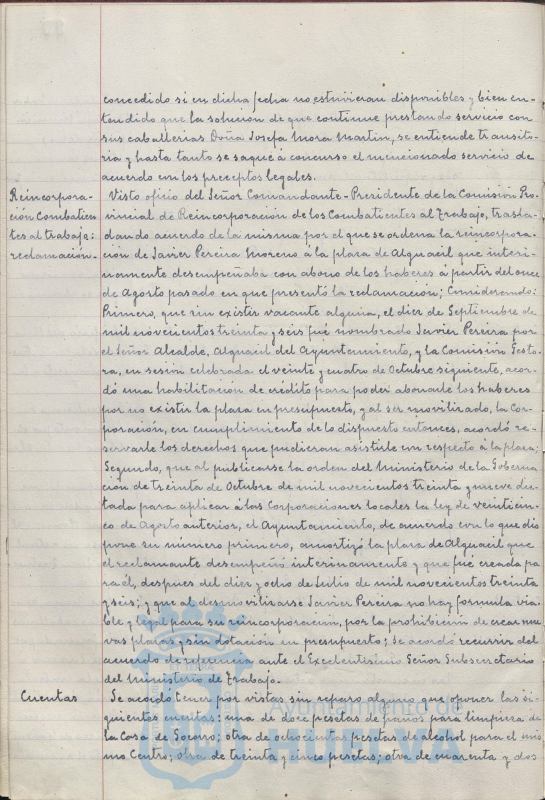 concedido si en dicha fecha no estuvieran disponibles y bien en-
tendido que la solucion de que continue prestando servicio con
sus caballerias Doña Josefa Mora Martin, se entiende transito-
ria y hasta tanto se saque á concurso el mencionado servicio de
acuerdo con los preceptos legales.
Reincorpora-
ción Combatien
tes al trabajo:
reclamación.-
Visto oficio del Señor Comandante-Presidente de la Comisión Pro-
vincial de Reincorporación de los Combatientes al Trabajo, trasla-
dando acuerdo de la misma por el que se ordena la reincorpora-
ción de Javier Pereira Moreno á la plaza de Alguacil que interi-
namente desempeñaba con abono de los haberes á partir del once
de Agosto pasado en que presentó la reclamación; Considerando:
Primero, que sin existir vacante alguna, el diez de Septiembre de
mil novecientos treinta y seis fué nombrado Javier Pereira por
el Señor Alcalde, Alguacil del Ayuntamiento, y la Comisión Gesto-
ra, en sesión celebrada el veinte y cuatro de Octubre siguiente, acor-
dó una habilitación de crédito para poder abonarle los haberes
por no existir la plaza en presupuesto, y al ser movilizado, la Cor-
poración, en cumplimiento de lo dispuesto entonces, acordó re-
servarle los derechos que pudieran asistirle en respecto á la plaza;
Segundo, que al publicarse la orden del Ministerio de la Goberna
ción de treinta de Octubre de mil novecientos treinta y nueve dic-
tada para aplicar á las Corporaciones locales la ley de veinticin-
co de Agosto anterior, el Ayuntamiento, de acuerdo con lo que dis
pone su número primero, amortizó la plaza de Alguacil que
el reclamante desempeñó interinamente y que fué creada pa
ra él, despues del diez y ocho de Julio de mil novecientos treinta
y seis; y que al desmovilizarse Javier Pereira no hay formula via-
ble y legal para su reincorporación, por la prohibición de crear nue
vas plazas y sin dotación en presupuesto; Se acordó recurrir del
acuerdo de referencia ante el Excelentisimo Señor Subsecretario
del Ministerio de Trabajo.
Cuentas
Se acordó tener por vistas sin reparo alguno que oponer las si-
guientes cuentas: una de doce pesetas de paños para limpieza de
la Casa de Socorro; otra de ochocientas pesetas de alcohol para el mis
mo Centro; otra de treinta y cinco pesetas; otra de cuarenta y dos
Ayuntamiento de
HUELVA